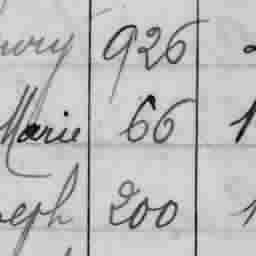 926
Marie 66 1
seph 200 1